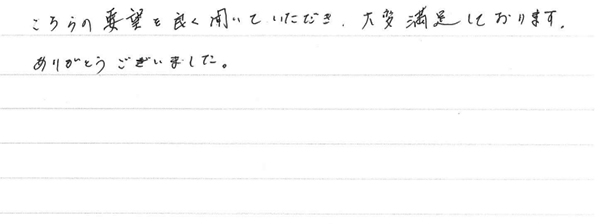 こちらの要望を良く聞いていただき、大変満足しております。
ありがとうございました。